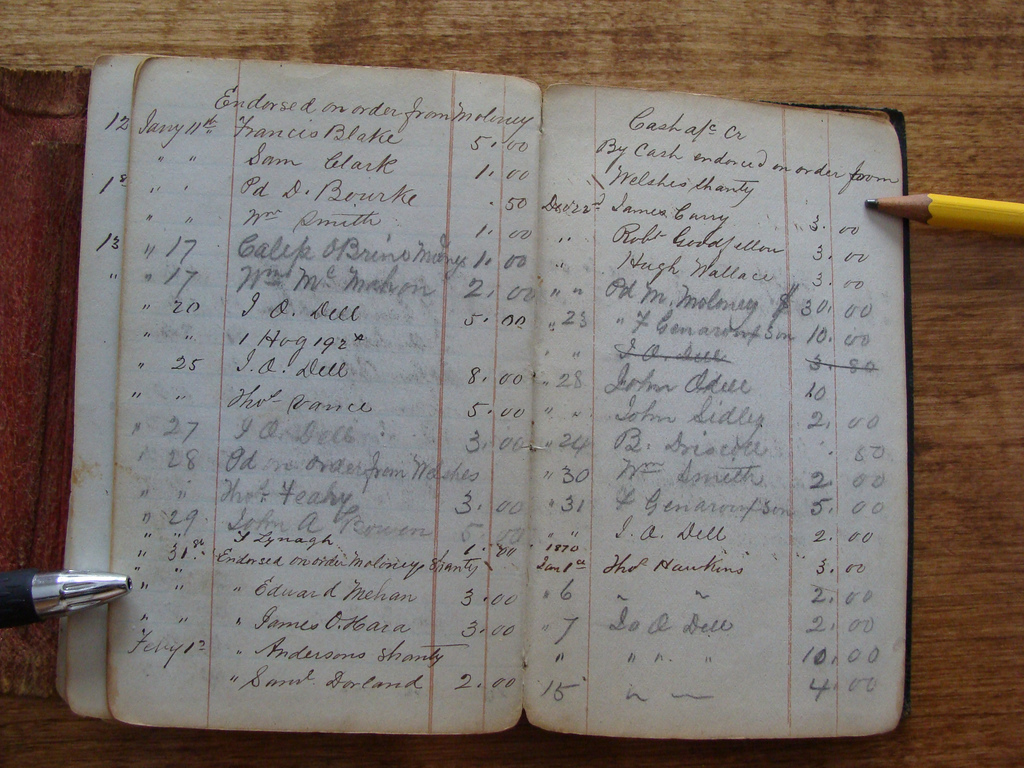 Endorsed on order from Moloney
12 Jany 11th Francis Blake 5.00
" " Sam Clark 1.00
1st " " Pd D. Bourke .50
" " Wm Smith 1.00
13 " 17 Caleb O Brine 1.00
" " 17 Wm Mc Mahon 2.00
" 20 J O. Dell 5.00
" " 1 Hog 192
" 25 J. O. Dell 8.00
" " Thos Vance 5.00
" 27 J O. Dell 3.00
" 28 Pd on order from Welshes
" " Thos Feahy 3.00
" 29 John A Bowen 5.00
T Lynagh 1.00
" 31st Endorsed on order Moloneys Shanty
" " " Edward Mehan 3.00
" " " James O.Hara 3.00
Feby 1st " Andersons Shanty
" Saml. Dorland 2.00
Cash a/c Cr
By Cash endorsed on order from
Welshes Shanty
Dec 22d James Curry 3.00
" " Robt Goodfellow 3.00
" Hugh Wallace 3.00
" " Pd M. Moloney $ 30.00
" 23 " F Genaron & Son 10.00
" " J O. Dell 3.80
" 28 John Odell 10
" " John Sidley 2.00
" 24 B. Driscoll .50
" 30 Wm Smith 2 00
" 31 F Genaron & Son 5.00
" " J. O. Dell 2.00
1870
Jan 1st Thos Hawkins 3.00
" 6 " " 2.00
" 7 Do O Dell 2.00
" " " " 10.00
15 " — 4.00